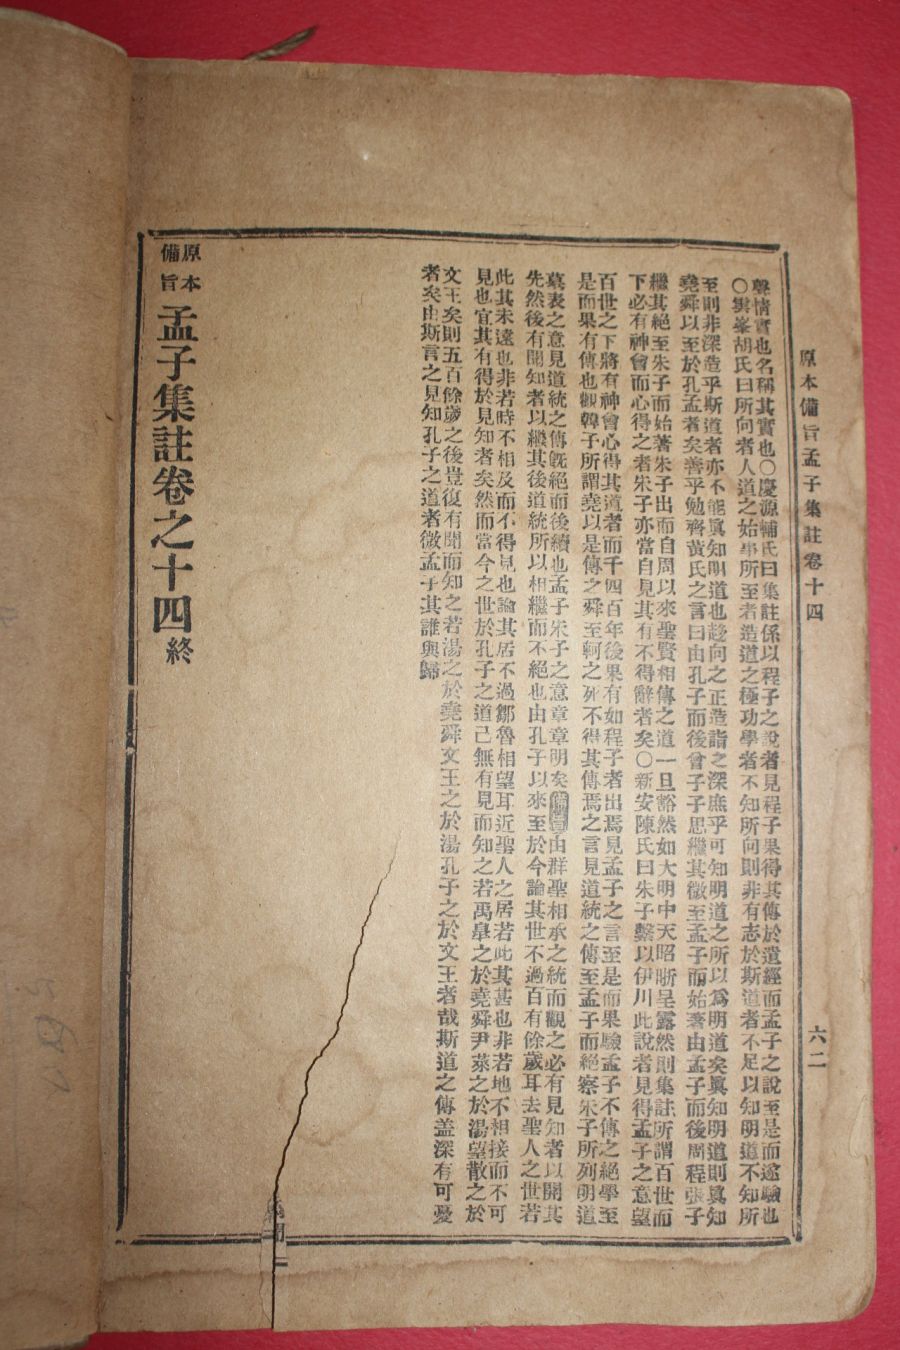 原本備旨孟子集註卷十四
六二
聲情實也名稱其實也〇慶源輔氏曰集註係以程子之說者見程子果得其傳於遺經而孟子之說至是而遂驗也
〇雲峯胡氏曰所向者人道之始事所至者造道之極功學者不知所向則非有志於斯道者不足以知明道不知所
至則非深造乎斯道者亦不能眞知明道也趍向之正造詣之深庶乎可知明道之所以爲明道矣眞知明道則眞知
堯舜以至於孔孟者矣善乎勉齊黃氏之言曰由孔子而後曾子子思繼其微至孟子而始著由孟子而後周程張子
繼其絕至朱子而始著朱子出而自周以來聖賢相傳之道一旦豁然如大明中天昭晣呈露然則集註所謂百世而
下必有神會而心得之者朱子亦當自見其有不得辭者矣〇新安陳氏曰朱子繫以伊川此說者見得孟子之意望
百世之下將有神會心得其道者而千四百年後果有如程子者出焉見孟子之言至是而果驗孟子不傳之絕學至
是而果有傳也觀韓子所謂堯以是傳之舜至軻之死不得其傳焉之言見道統之傳至孟子而絕察朱子所列明道
墓表之意見道統之傳旣絕而後續也孟子朱子之意章章明矣備旨由群聖相承之統而觀之必有見知者以開其
先然後有聞知者以繼其後道統所以相繼而不絕也由孔子以來至於今論其世不過百有餘歲耳去聖人之世若
此其未遠也非若時不相及而不得見也論其居不過鄒魯相望耳近聖人之居若此其甚也非若地不相接而不可
見也宜其有得於見知者矣然而當今之世於孔子之道己無有見而知之若禹臯之於堯舜尹萊之於湯望散之於
文王矣則五百餘歲之後豈復有聞而知之若湯之於堯舜文王之於湯孔子之於文王者哉斯道之傳盖深有可憂
者矣由斯言之見知孔子之道者微孟子其誰與歸
原本備旨孟子集註卷之十四終